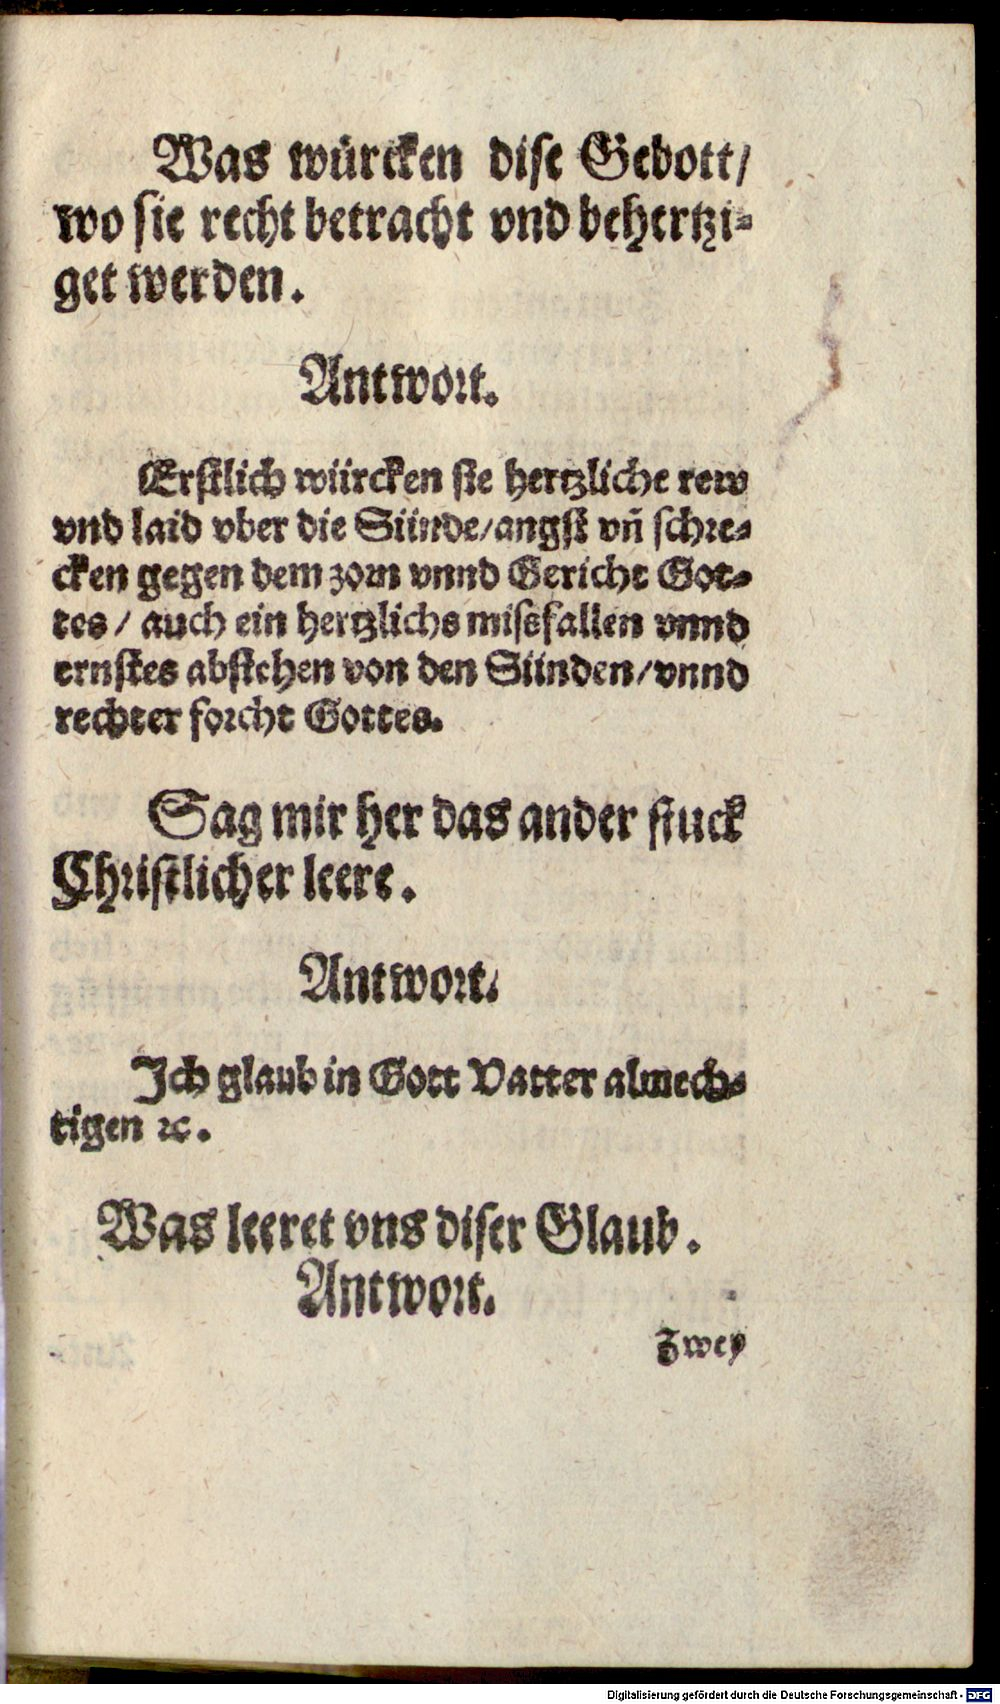 Was würcken dise Gebott/
wo sie recht betracht vnd behertzi-
get werden.
Antwort.
Erstlich würcken sie hertzliche rew
vnd laid vber die Sünde/angst vñ schre-
cken gegen dem zorn vnnd Gericht Got-
tes/ auch ein hertzlichs missfallen vnnd
ernstes abstehen von den Sünden/vnnd
rechter forcht Gottes.
Sag mir her das ander stuck
Christlicher leere.
Antwort.
Ich glaub in Gott Vatter almech-
tigen ꝛc.
Was leeret vns diser Glaub.
Antwort.
Zwey
Digitalisierung gefördert durch die Deutsche Forschungsgemeinschaft - DFG